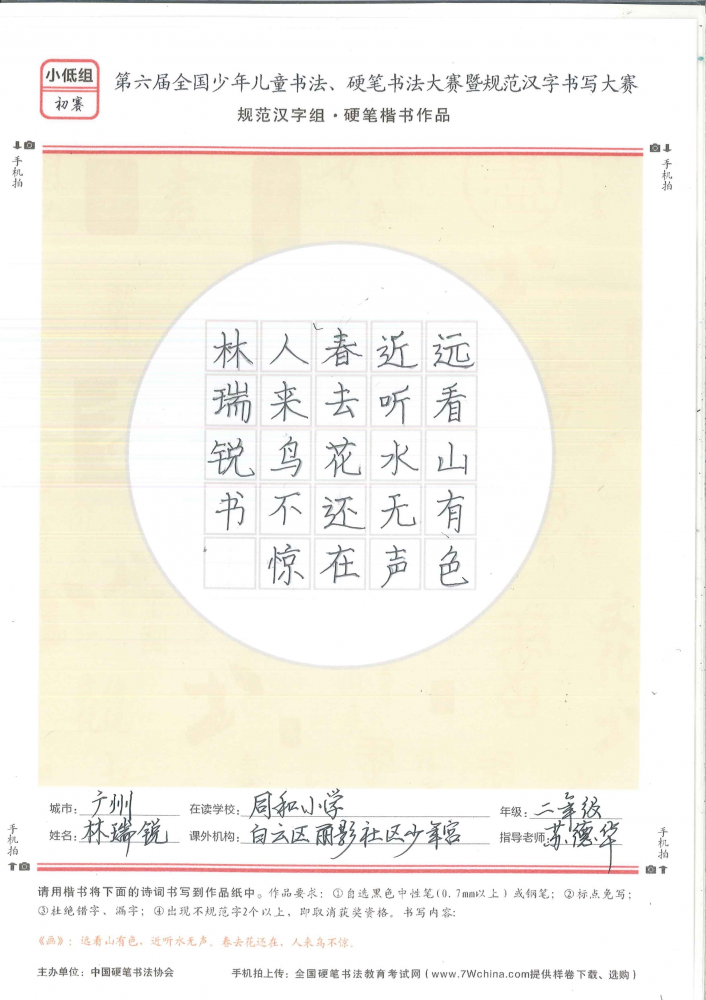 小低组
初赛
第六届全国少年儿童书法、硬笔书法大赛暨规范汉字书写大赛
规范汉字组·硬笔楷书作品
手机拍
手机拍
远看山有色
近听水无声
春去花还在
人来鸟不惊
林瑞锐书
城市：广州 在读学校：同和小学 年级：二年级
姓名：林瑞锐 课外机构：白云区丽影社区少年宫 指导老师：苏德华
手机拍
手机拍
请用楷书将下面的诗词书写到作品纸中。作品要求：①自选黑色中性笔(0.7mm以上)或钢笔；②标点免写；
③杜绝错字、漏字；④出现不规范字2个以上，即取消获奖资格。书写内容：
《画》：远看山有色，近听水无声。春去花还在，人来鸟不惊。
主办单位：中国硬笔书法协会 手机拍上传：全国硬笔书法教育考试网（www.7Wchina.com提供样卷下载、选购）